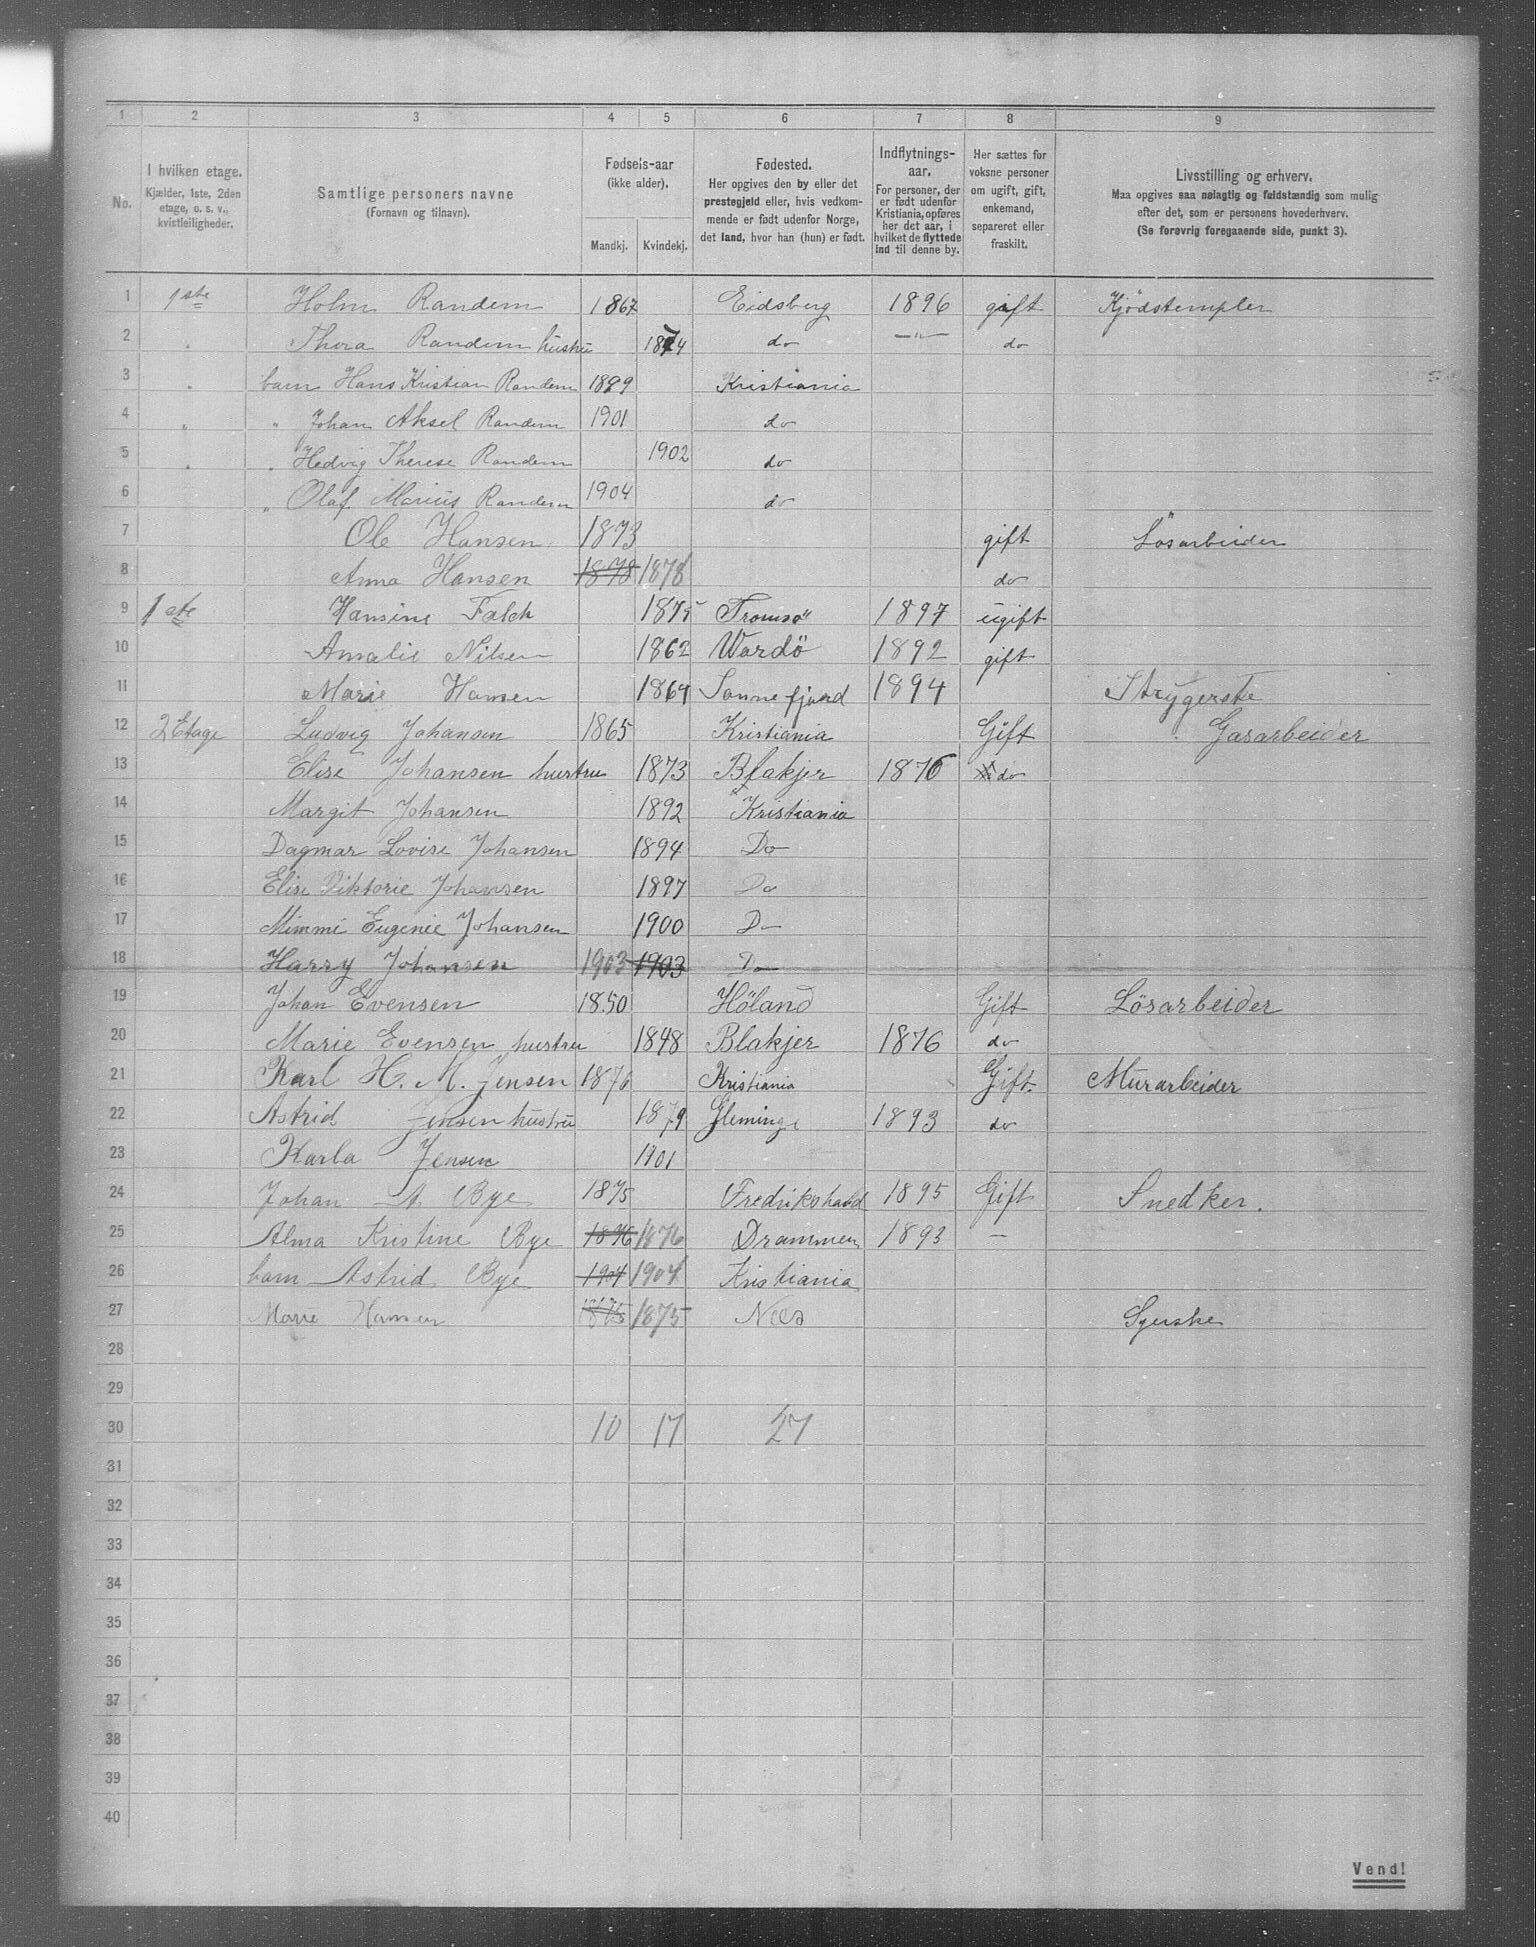 1 2 3 4 5 6 7 8 9
No.
I hvilken etage.
Kjælder, 1ste, 2den
etage, o. s. v.,
kvistleiligheder.
Samtlige personers navne
(Fornavn og tilnavn).
Fødsels-aar
(ikke alder).
Mandkj. Kvindekj.
Fødested.
Her opgives den by eller det
prestegjeld eller, hvis vedkom-
mende er født udenfor Norge,
det land, hvor han (hun) er født.
Indflytnings-
aar.
For personer, der
er født udenfor
Kristiania, opføres
her det aar, i
hvilket de flyttede
ind til denne by.
Her sættes for
voksne personer
om ugift, gift,
enkemand,
separeret eller
fraskilt.
Livsstilling og erhverv.
Maa opgives saa nøiagtig og fuldstændig som mulig
efter det, som er personens hovederhverv.
(Se forøvrig foregaaende side, punkt 3).
1 1ste Holm Randem 1867 Eidsberg 1896 gift Kjödstempler
2 " Thora Randem hustru 1874 do —"— do
3 " barn Hans Kristian Randem 1899 Kristiania
4 " " Johan Aksel Randem 1901 do
5 " " Hedvig Therese Randem 1902 do
6 " Olaf Marius Randem 1904 do
7 Ole Hansen 1873 gift Lösarbeider
8 Anna Hansen 1878 1878 do
9 1ste Hansine Falck 1875 Tromsö 1897 ugift
10 Amalie Nilsen 1862 Wardö 1892 gift
11 Marie Hansen 1864 Sannefjord 1894 Strygerske
12 2 Etage Ludvig Johansen 1865 Kristiania Gift Gasarbeider
13 Elise Johansen hustru 1873 Blakjer 1876 do
14 Margit Johansen 1892 Kristiania
15 Dagmar Lovise Johansen 1894 Do
16 Elise Viktorie Johansen 1897 Do
17 Mimmi Eugenie Johansen 1900 Do
18 Harry Johansen 1903 1903 Do
19 Johan Evensen 1850 Höland Gift Lösarbeider
20 Marie Evensen hustru 1848 Blakjer 1876 do
21 Karl H. M. Jensen 1876 Kristiania Gift. Murarbeider
22 Astrid Jensen hustru 1879 Gleminge 1893 do
23 Karla Jensen 1901
24 Johan A Bye 1875 Fredrikshald 1895 Gift Snedker.
25 Alma Kristine Bye 1876 1876 Drammen 1893 —
26 barn Astrid Bye 1904 1904 Kristiania
27 Marie Hansen 1875 1875 Næs Syerske
28
29
30 10 17 27
31
32
33
34
35
36
37
38
39
40
Vend!